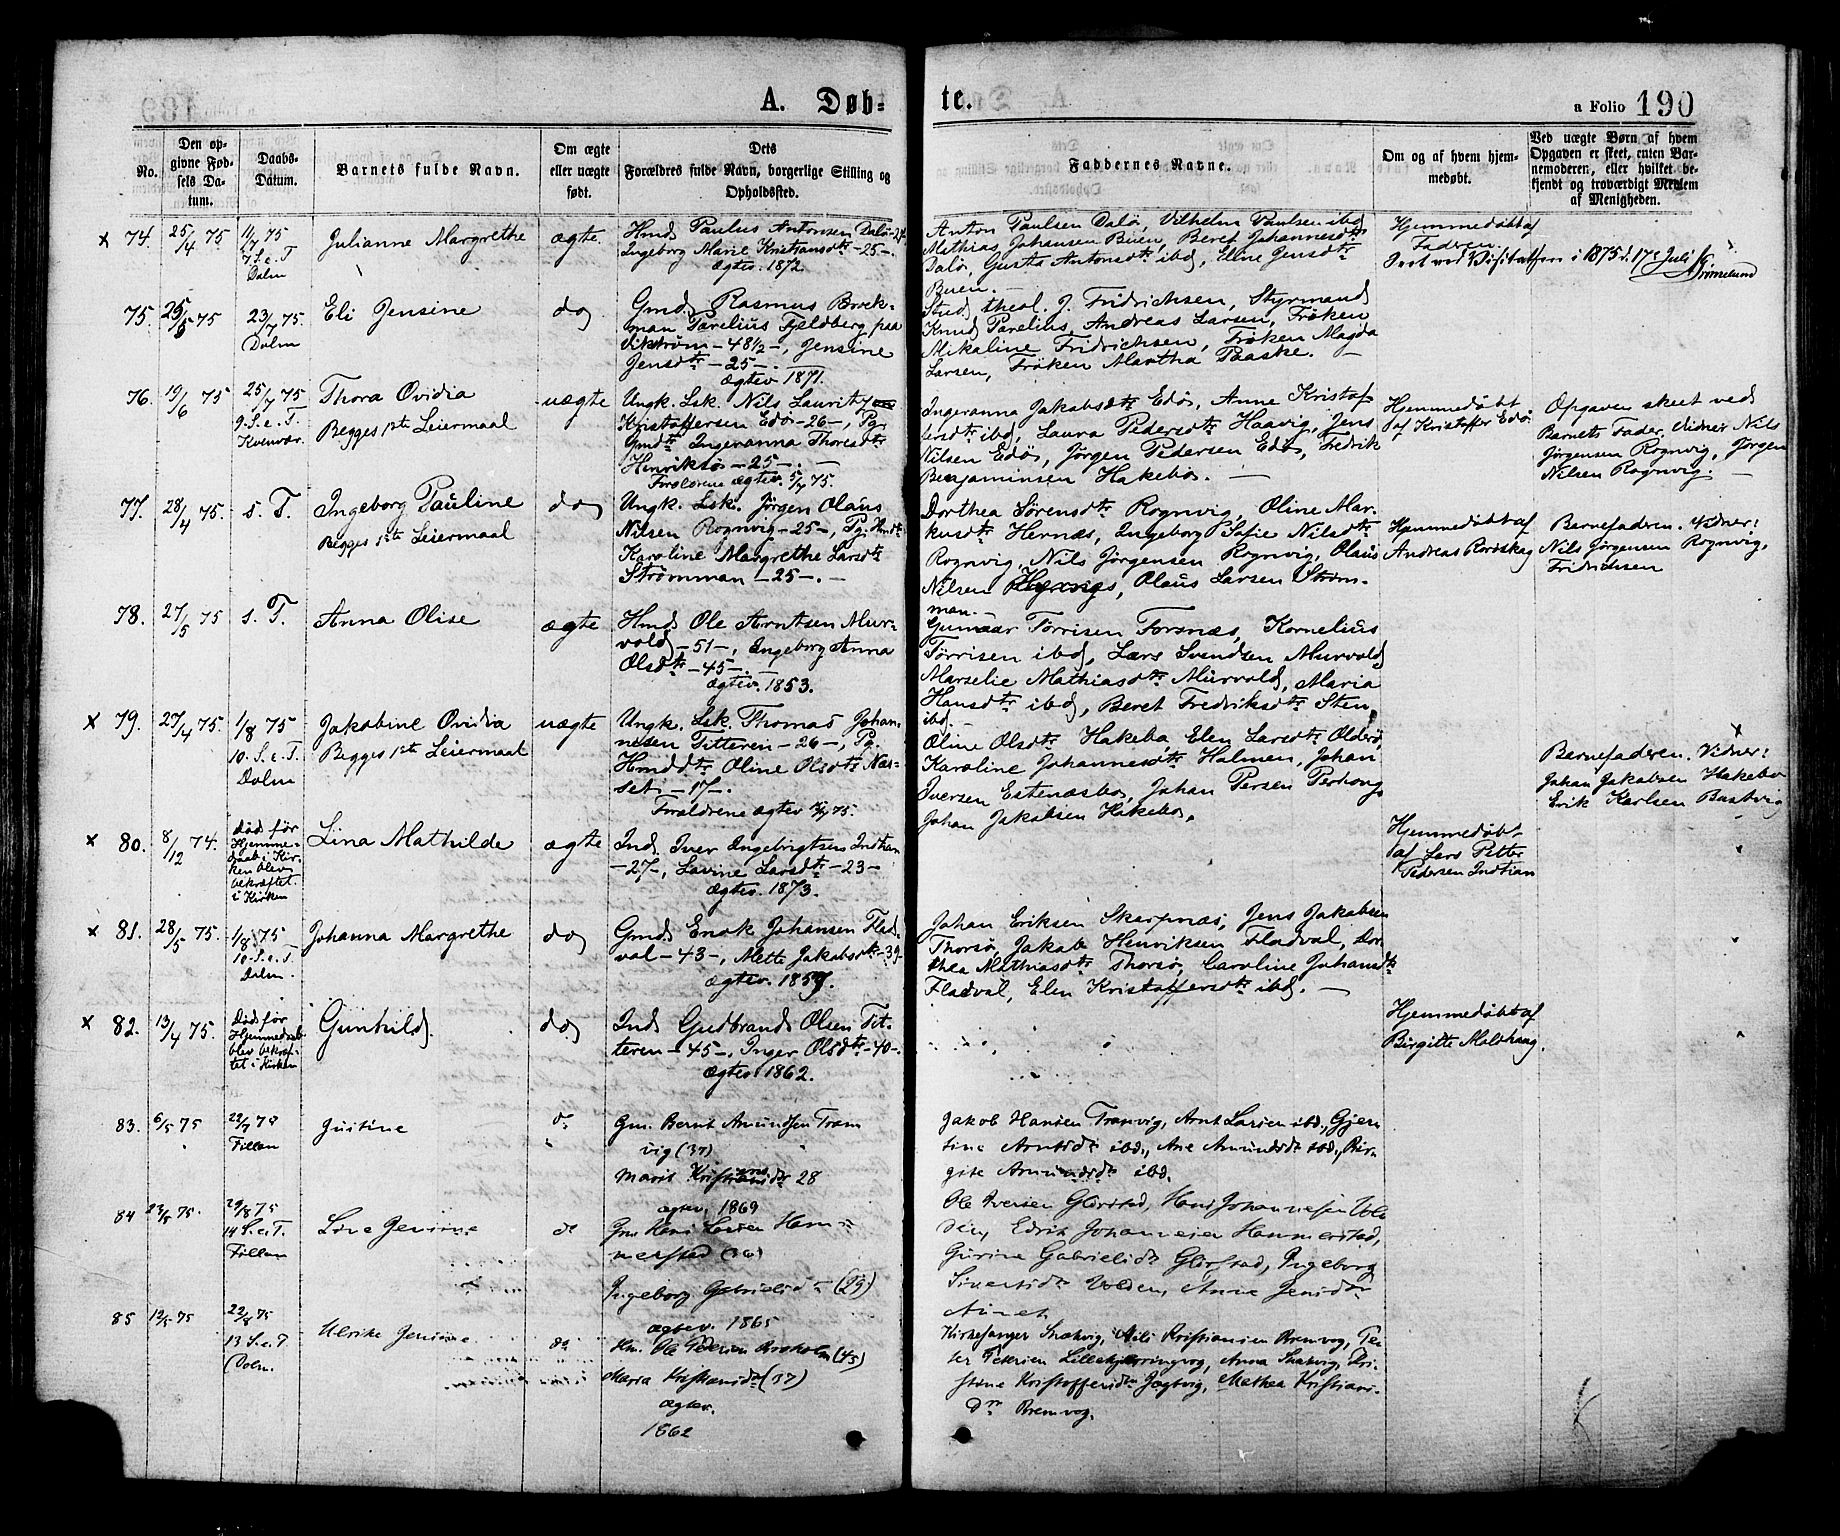 A. Døb-
te.
a Folio 190
No.
Den op-
givne Fød-
sels Da-
tum.
Daabs-
Datum.
Barnets fulde Navn.
Om ægte
eller uægte
født.
Dets
Forældres fulde Navn, borgerlige Stilling og
Opholdssted.
Faddernes Navne.
Om og af hvem hjem-
medøbt.
Ved uægte Børn af hvem
Opgaven er skeet, enten Bar-
nemoderen, eller hvilket be-
kjendt og troværdigt Medlem
af Menigheden.
x 74. 25/4 75
11/7 75
7. S. e. T.
Dolm
Julianne Margrethe
ægte.
Hmd. Paulus Antonsen Dalø-27-
Ingeborg Marie Kristiansdtr -25-.
Ægtev. 1872.
Anton Paulsen Dalø, Vilhelm Paulsen ibd
Mathias Johansen Buen, Beret Johannesdtr
Dalø, Gusta Antonsdtr ibd, Eline Jensdtr
Buen. —
Hjemmedøbt af
Faderen.
Seet ved Visitatsen i 1875 d. 17s Juli
75. 25/5 75
23/7 75.
Dolm
Eli Jensine
do
Gmd. Rasmus Brock-
man Parelius Fjeldberg paa
Vikstrøm -48 1/2-, Jensine
Jensdtr -25-.
Ægtev 1871.
Stud. theol. J. Fridrichsen, Styrmand
Knud Parelius, Andreas Larsen, Frøken
Mikaline Fridrichsen, Frøken Magda
Larsen, Frøken Martha Paaske. —
76. 19/6 75
25/7 75
9. S. e. T.
Kvenvær
Thora Ovidia
Begges 1ste Leiermaal
uægte
Ungk. Lsk. Nils Lauritz
Kristoffersen Edø -26-, Pg.
Gmdtr Ingeranna Thoresdtr
Henriksø -25-. —
Forældrene ægtev. 5/7 75.
Ingeranna Jakobsdtr Edø, Anne Kristof-
fersdtr ibd, Laura Pedersdtr Haavig, Jens
Nilsen Edø, Jørgen Pedersen Edø, Fredrik
Benjaminsen Hakebo. —
Hjemmedøbt
af Kristoffer Edø
Opgaven skeet ved
Barnets Fader. Vidner Nils
Jørgensen Rognvig, Jørgen
Nilsen Rognvig. —
77. 28/4 75. s. T.
Ingeborg Pauline
Begges 1ste Leiermaal
do
Ungk. Lsk. Jørgen Olaus
Nilsen Rognvig -25-, Pg. Hmdtr
Karoline Margrethe Larsdtr
Strømman -25-. —
Dorthea Sørensdtr Rognvig, Oline Mar-
kusdtr Hernæs, Ingeborg Sofie Nilsdtr
Rognvig, Nils Jørgensen Rognvig, Olaus
Nilsen Olaus Larsen Strøm-
man. —
Hjemmedøbt af
Andreas Rørskag
Barnefaderen. Vidner:
Nils Jørgensen Rognvig,
Fridrichsen
78. 27/5 75 s. T.
Anna Olise
ægte
Hmd Ole Arntsen Mur-
vold -51-, Ingeborg Anna
Olsdtr -45-.
Ægtev. 1853.
Gunnar Tørrisen Forsnæs, Kornelius
Tørrisen ibd, Lars Svendsen Murvold
Marselie Mathiasdtr Murvold, Maria
Hansdtr ibd, Beret Fredriksdtr Sten
ibd. —
x 79. 27/4 75.
1/8 75
10. S. e. T.
Dolm
Jakobine Ovidia
Begges 1ste Leiermaal
uægte
Ungk. Lsk. Thomas Johan-
nesen Titteren -26-, Pg.
Hmddtr Oline Olsdtr Næs-
set -17-.
Forældrene ægtev 75.
Oline Olsdtr Hakebo, Elen Larsdtr Olderø,
Karoline Johannesdtr Holmen, Johan
Iversen Estenæsbo, Johan Persen Perhong
Johan Jakobsen Hakebo.
Barnefaderen. Vidner:
Johan Jakobsen Hakebo
Erik Karlsen Bastvig
x 80. 8/12 74.
Død før
Hjemme-
daab i Kir-
ken blev
bekræftet
i Kirken
Lina Mathilde
ægte
Ind. Iver Ingebrigtsen Indtian
-27-, Lavine Larsdtr -23-
Ægtev. 1873.
Hjemmedøbt
af Lars Petter
Pedersen Indtian
x 81. 28/5 75.
1/8 75
10. S. e. T.
Dolm.
Johanna Margrethe
do
Gmd Enok Johansen Flad-
val -43-, Mette Jakobsdtr -39-
Ægtev.
Johan Eriksen Skarpnæs, Jens Jakobsen
Thorsø, Jakob Henriksen Fladval, Dor-
thea Mathiasdtr Thorsø, Caroline Johansdtr
Fladval, Elen Kristoffersdtr ibd. —
x 82. 13/4 75.
Død før
Hjemmedaab
blev bekræf-
tet i Kirken
Gunhild.
do
Ind Gudbrand Olsen Tit-
teren -45-, Inger Olsdtr -40-.
Ægtev 1862.
Hjemmedøbt af
Birgitte Moldhaug.
83. 6/5 75
Fillan
Justine
do
Gm. Bernt Amundsen Tran
vig (37)
Marit Kristiansdtr 28
ægtev. 1869
Jakob Hansen Tranvig, Arnt Larsen ibd., Gjer-
tine Arntsdtr ibd., Ane Amundsdtr ibd., Bir-
gite Amundsdtr ibd.
84 23/5 75.
29/8 75
14 S. e. T.
Fillan
Line Jensine
do
Gm. Hans Larsen Ham-
merstad (36)
Ingeborg Gabrielsdtr (29)
ægtev. 1865
Ole Iversen Glørstad, Hans Johannesen Vol-
den, Edrik Johannesen Hammerstad,
Gurine Gabrielsdtr Glørstad, Ingeborg
Sivertsdtr Volden, Anne Jensdtr
85 12/5 75
22/8 75
13 S. e. T
Dolm.
Ulrike Jensine
do
Hm. Ole Pedersen (45)
Maria Kristiansdtr (37)
ægtev.
1862
Kirkesanger Snekvig, Nils Kristiansen Bremvog, Pe-
ter Petersen Lillekjerringvog, Anna Snekvig, Kri-
stine Kristoffersdtr Jøstvig, Mathea Kristians-
dtr Bremvog.